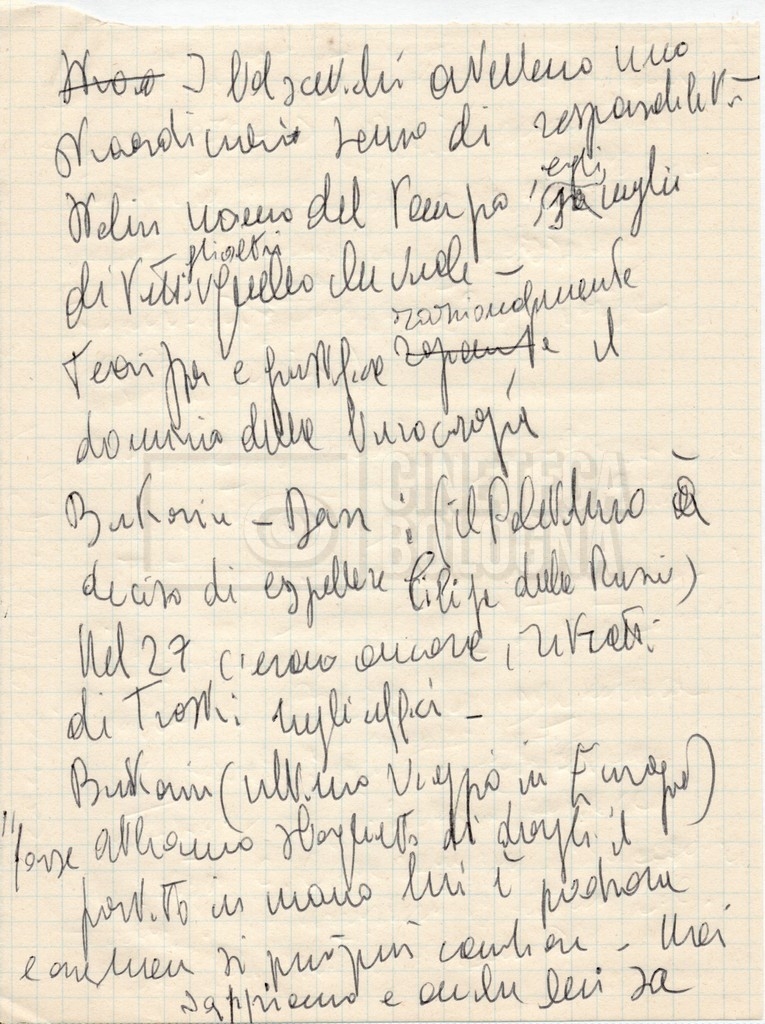 I bolscevichi avevano uno
straordinario senso di responsabilità
Stalin uomo del tempo, egli meglio
di tutti gli altri quello che vuole –
Teorizza e giustifica razionalmente il
dominio della burocrazia
Bukarin – Dan : (il Politburo à
deciso di espellere dalla Russia)
Nel 27 c'erano ancora i ritratti
di Troski negli uffici –
Bukarin (ultimo viaggio in Europa)
"forse abbiamo sbagliato di dargli il
partito in mano lui è padrone
e non si può più cambiare – Noi
sappiamo e anche lui sa
CINETECA
BOLOGNA